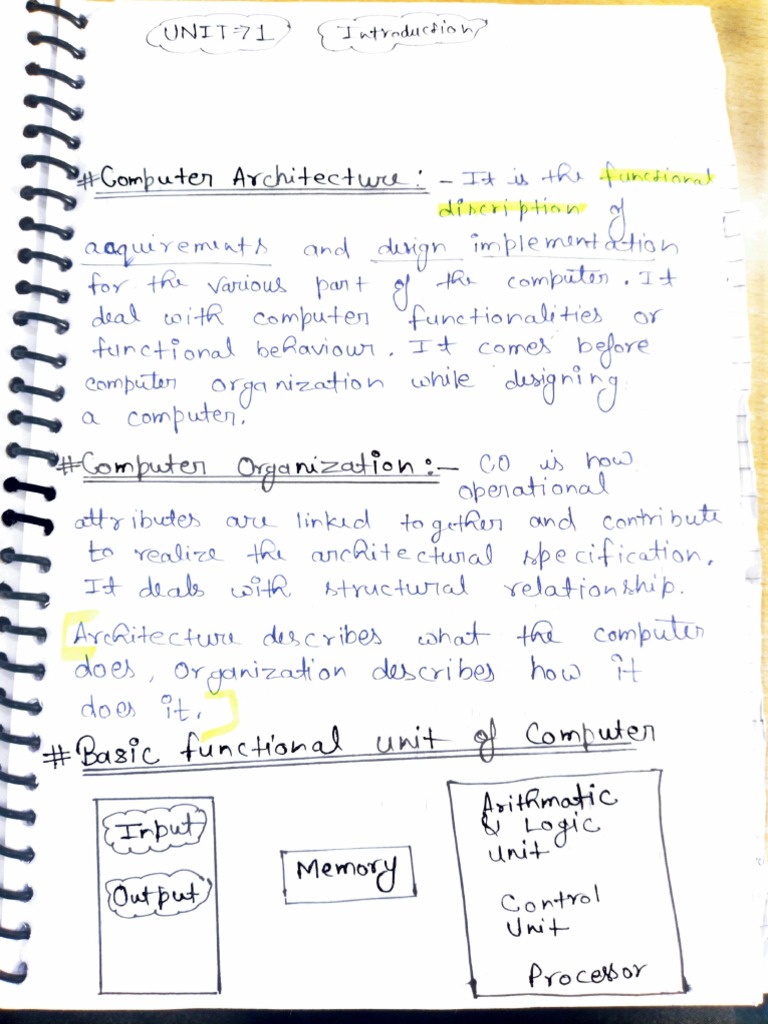 UNIT⇒1 Introduction
#Computer Architecture:- It is the functional
discription of
aaquirements and design implementation
for the various part of the computer. It
deal with computer functionalities or
functional behaviour. It comes before
computer organization while designing
a computer.
#Computer Organization:- CO is how
operational
attributes are linked together and contribute
to realize the architectural specification.
It deals with structural relationship.
Architecture describes what the computer
does, Organization describes how it
does it.
# Basic functional unit of Computer
Input
Output
Memory
Arithmatic
& Logic
unit
Control
Unit
Processor